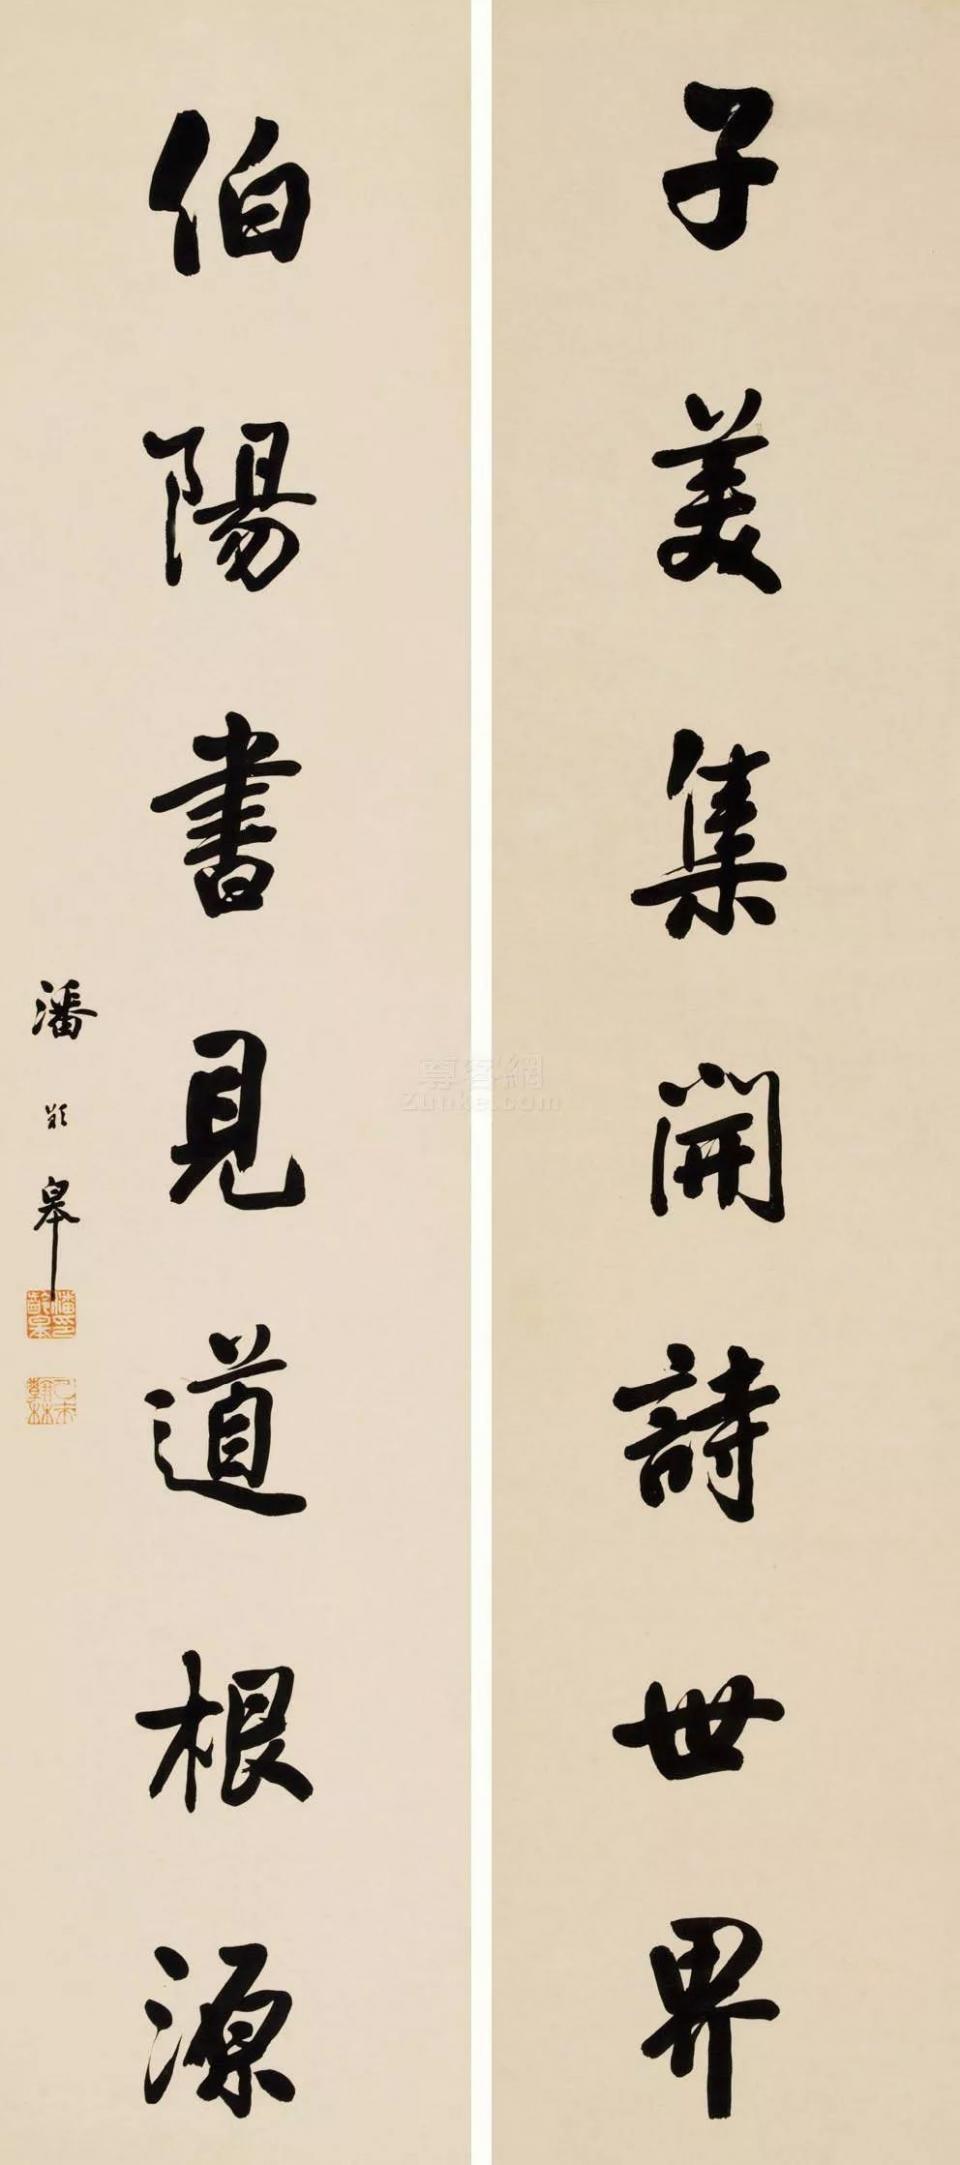 子美集開詩世界
伯陽書見道根源
潘齡皋
潘印齡皋
乙未翰林
尊客網
Zunke.com